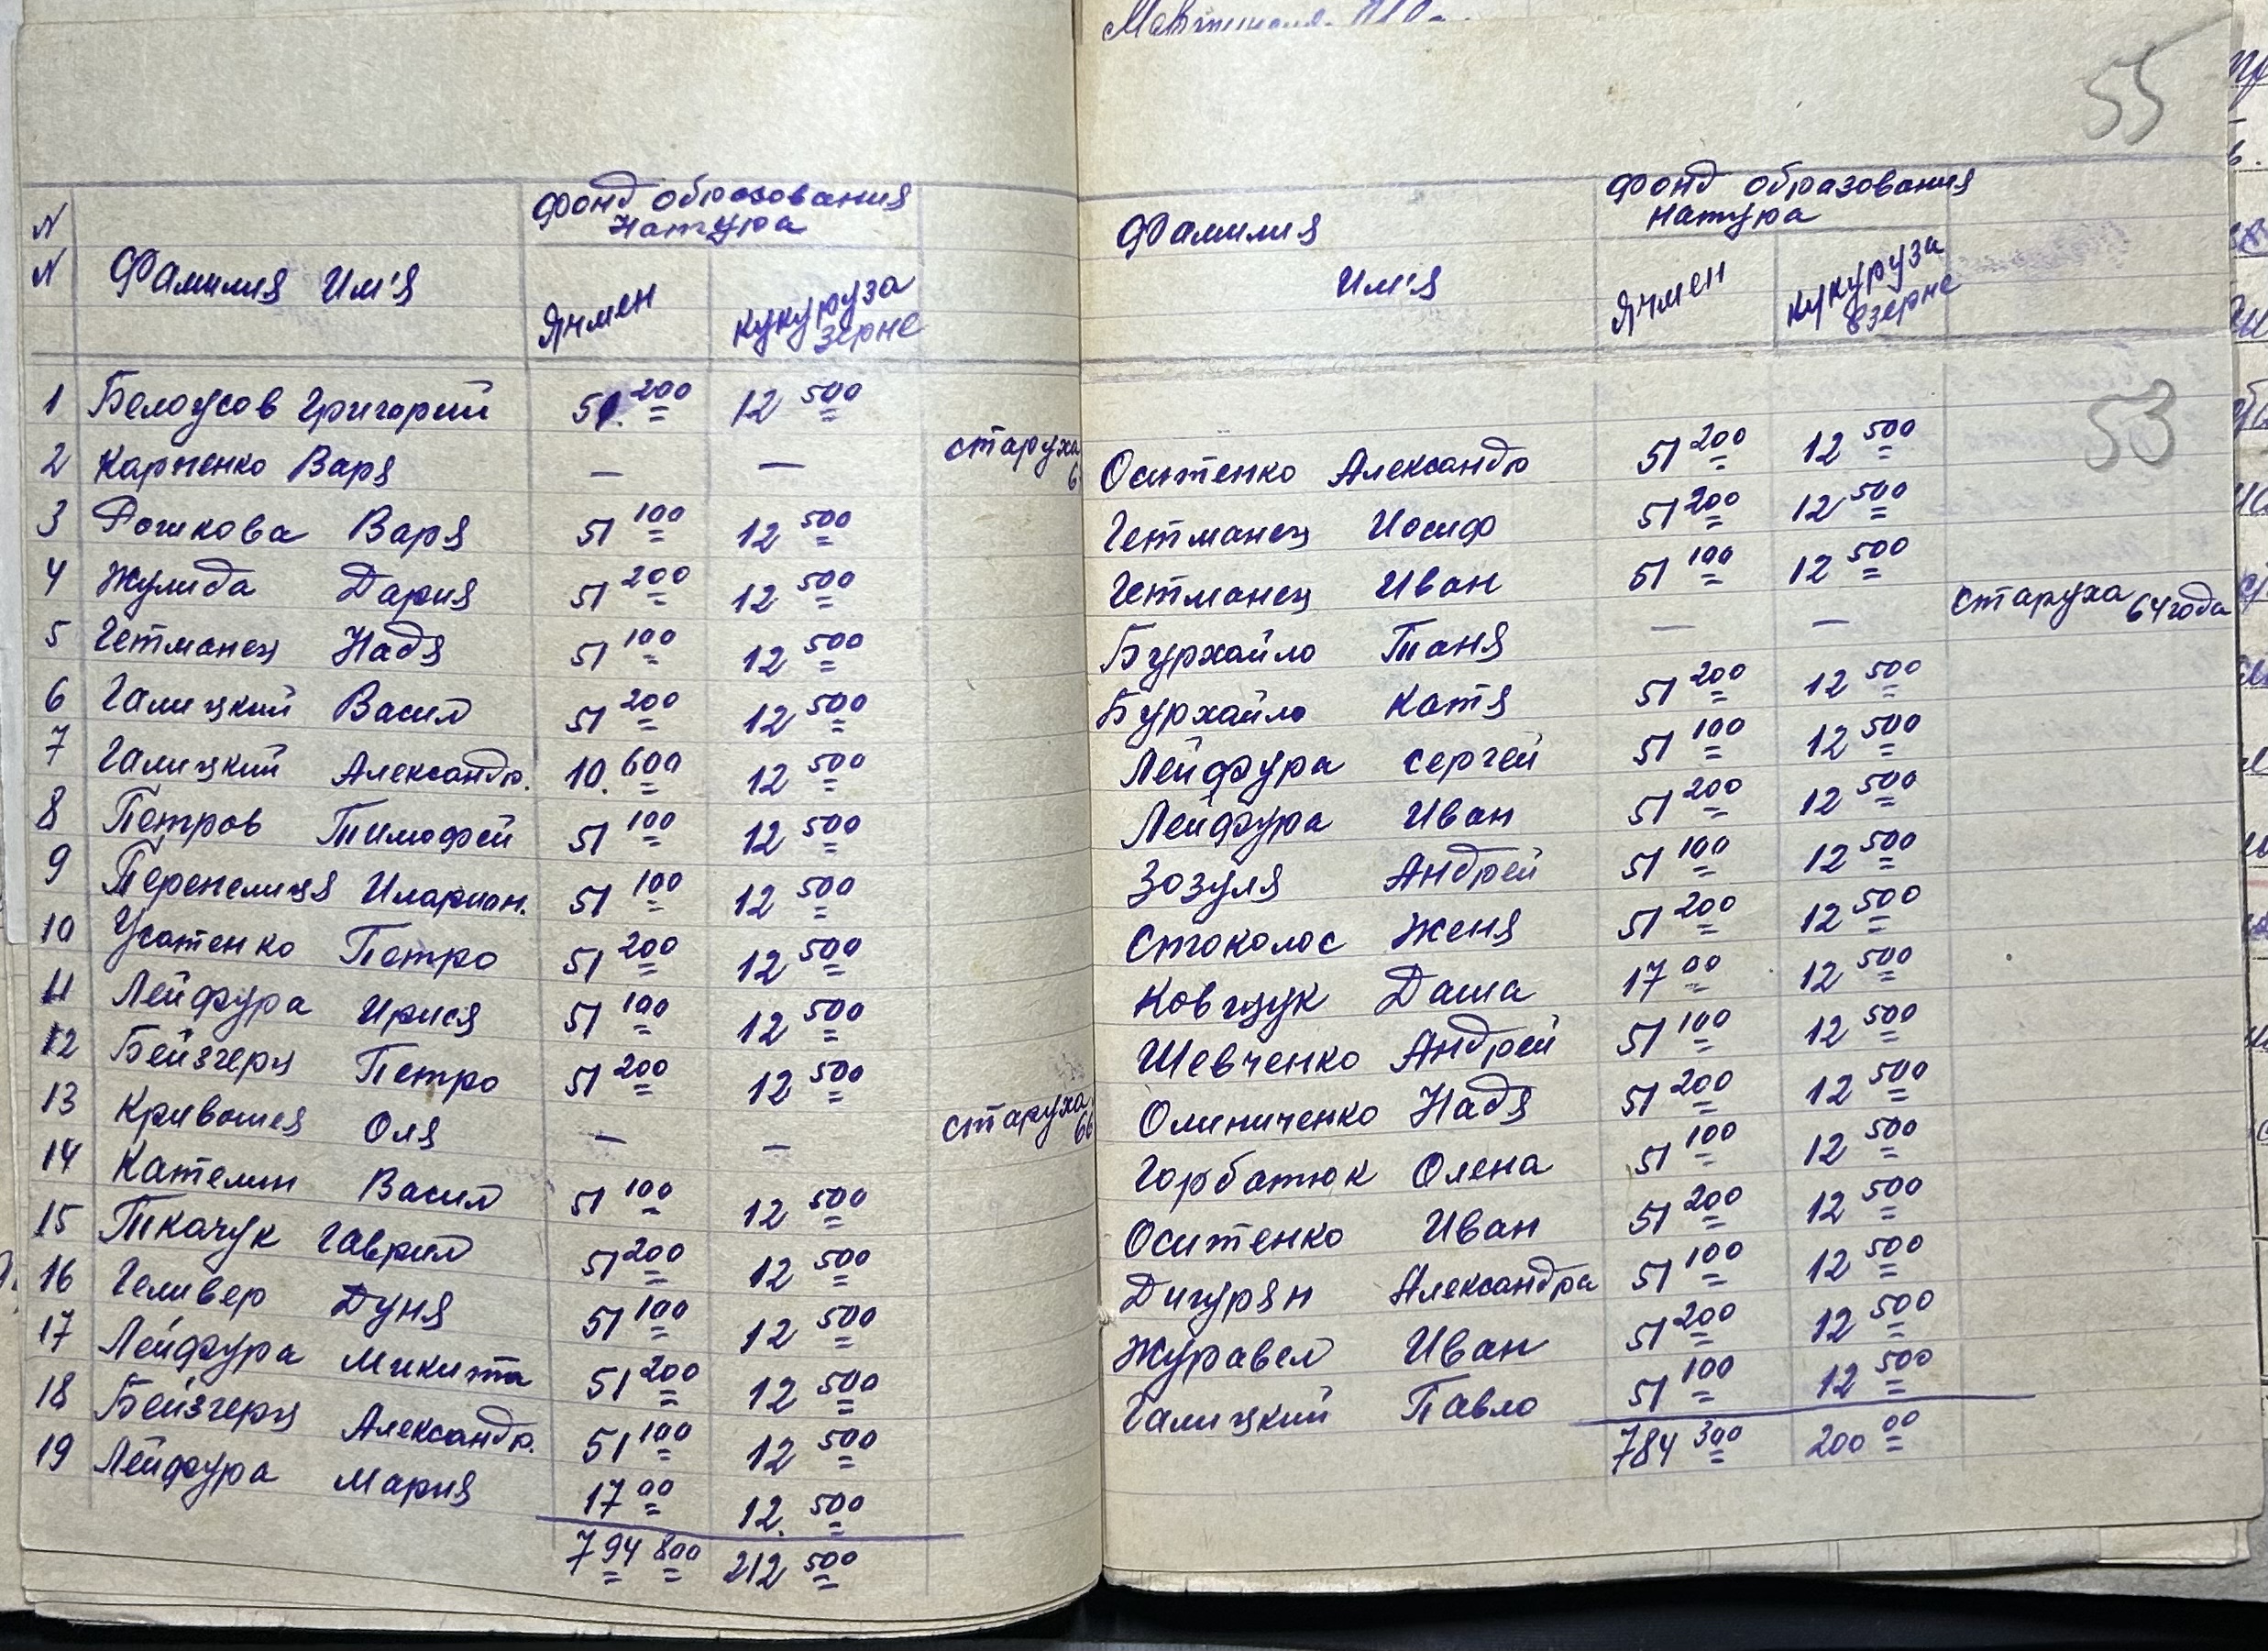 N
N Фамилия Им'я
Фонд образования
Натура
Ячмен
кукуруза
зерне
1 Белоусов Григорий 51.200 12 500
2 Карпенко Варя — — старуха
3 Рошкова Варя 51 100 12 500
4 Жулида Дария 51 200 12 500
5 Гетманец Надя 51 100 12 500
6 Галицкий Васил 51 200 12 500
7 Галицкий Александр. 10.600 12 500
8 Петров Тимофей 51 100 12 500
9 Перепелиця Иларион. 51 100 12 500
10 Усатенко Петро 51 200 12 500
11 Лейфура Ирися 51 100 12 500
12 Бейзгерц Петро 51 200 12 500
13 Кривошея Оля — — старуха 66
14 Кателин Васил 51 100 12 500
15 Ткачук Гаврил 51 200 12 500
16 Геливер Дуня 51 100 12 500
17 Лейфура Микита 51 200 12 500
18 Бейзгерц Александр. 51 100 12 500
19 Лейфура Мария 17 00 12. 500
794 800 212 500
55
Фамилия
Им'я
Фонд образования
натура
Ячмен
кукуруза
взерне
53
Оситенко Александр 51 200 12 500
Гетманец Иосиф 51 200 12 500
Гетманец Иван 51 100 12 500
Бурхайло Таня — — старуха 64 года
Бурхайло Катя 51 200 12 500
Лейфура Сергей 51 100 12 500
Лейфура Иван 51 200 12 500
Зозуля Андрей 51 100 12 500
Стоколос Женя 51 200 12 500
Ковщук Даша 17 00 12 500
Шевченко Андрей 51 100 12 500
Олиниченко Надя 51 200 12 500
Горбатюк Олена 51 100 12 500
Оситенко Иван 51 200 12 500
Дигурян Александра 51 100 12 500
Журавел Иван 51 200 12 500
Галицкий Павло 51 100 12 500
784 300 200 00